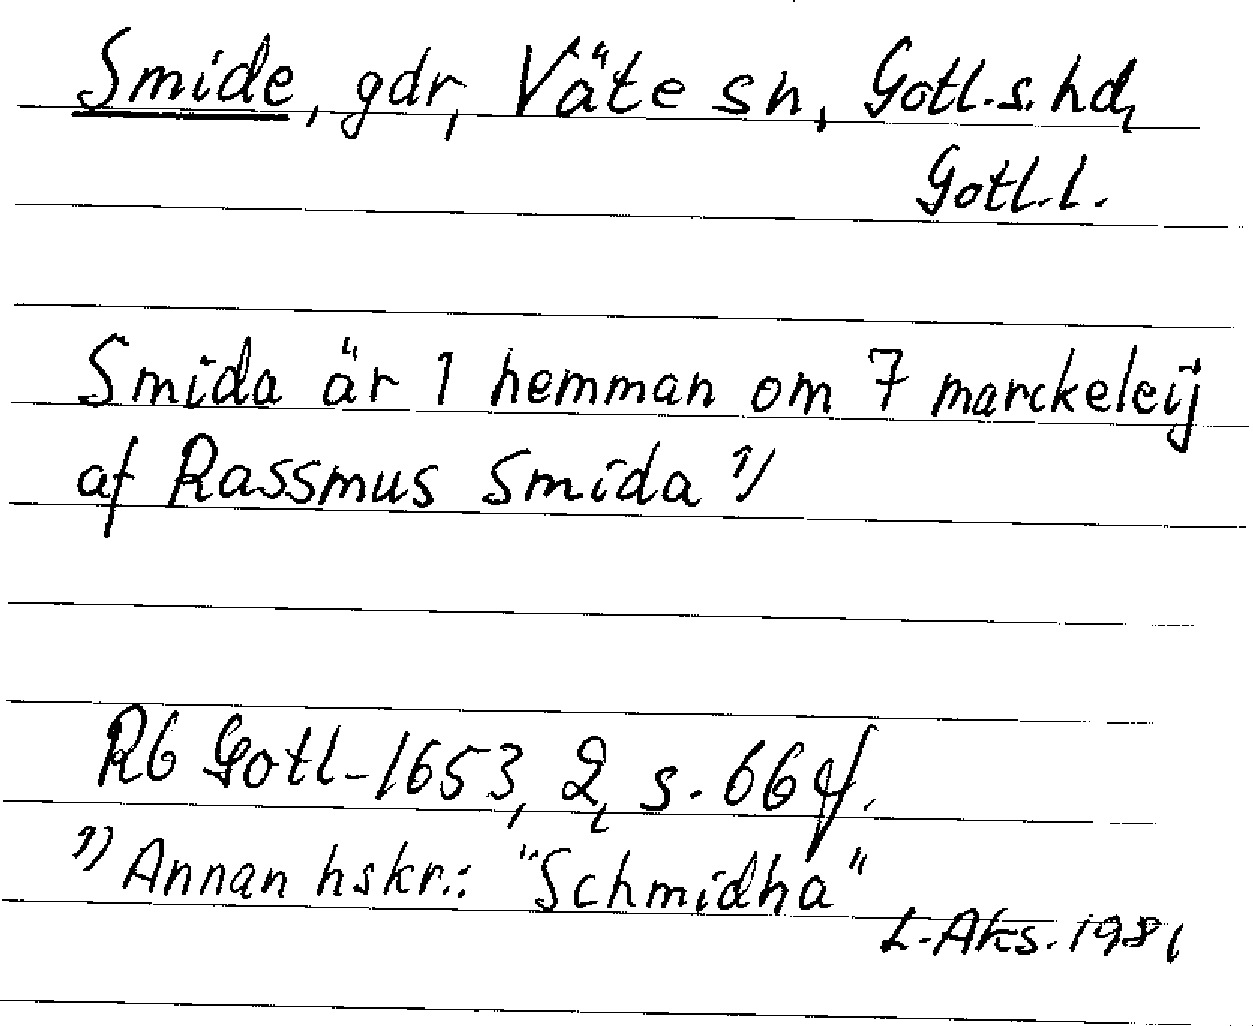 Smide, gdr, Väte sn, Gotl. s. hd,
Gotl. l.
Smida är 1 hemman om 7 marckeleij
af Rassmus Smida 1)
Rb Gotl 1653, 2, s. 66 f.
1) Annan hskr.: "Schmidha"
L. Aks. 1981